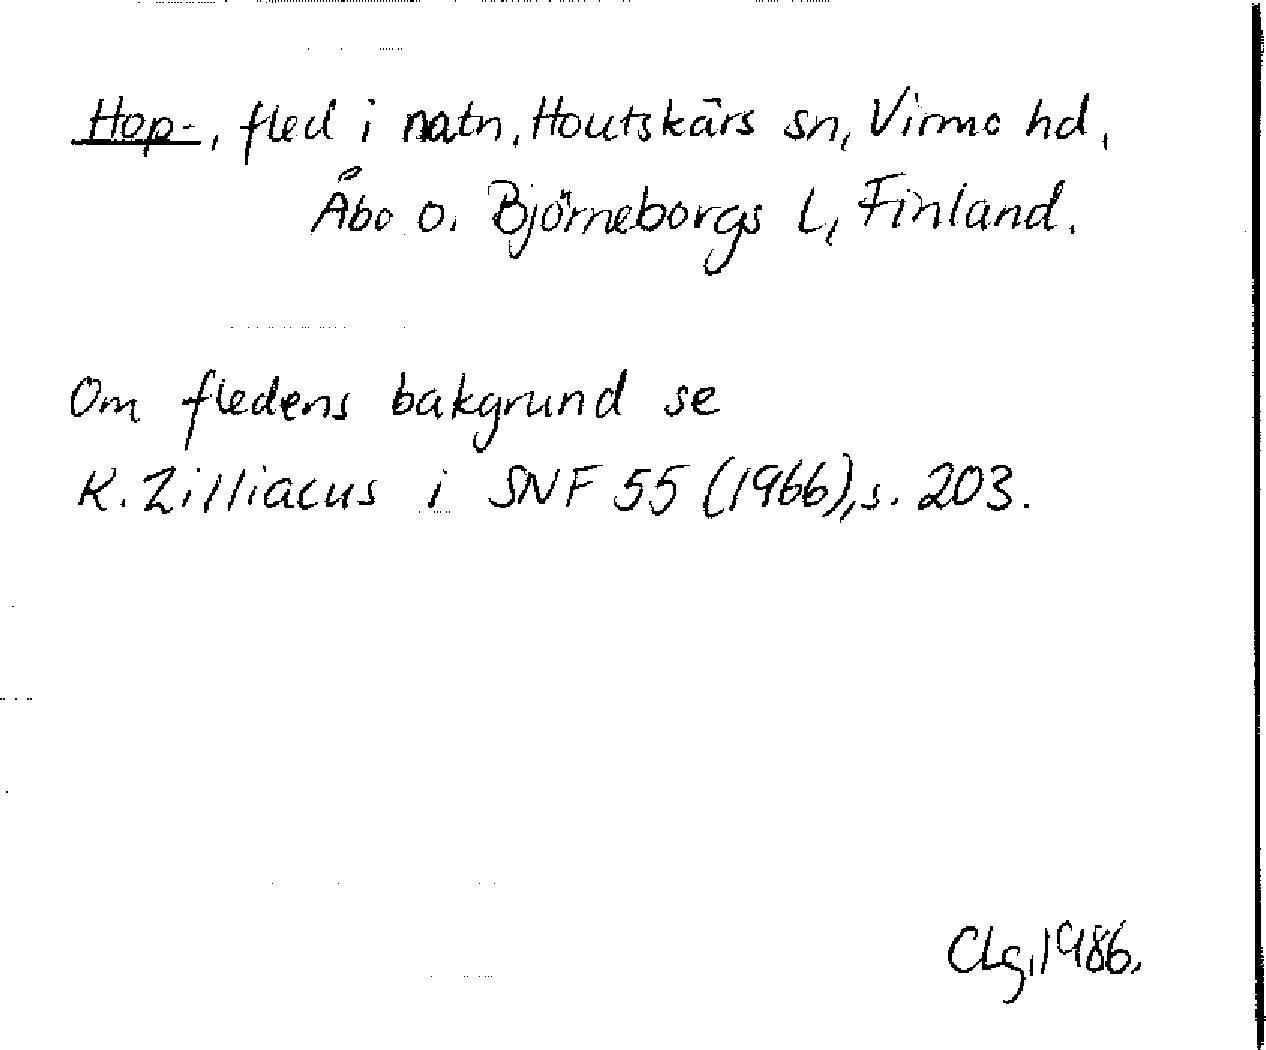 Hop-, fled i natn, Houtskärs sn, Virmo hd,
Åbo o. Björneborgs l, Finland.
Om fledens bakgrund se
K. Zilliacus i SNF 55 (1966), s. 203.
CLg, 1986.